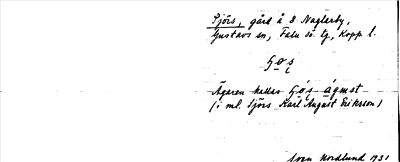 Sjörs, gård å S Naglarby,
Gustavs sn, Falu sö lg, Kopp. l.
Ägaren kallas
(: ml. Sjörs Karl August Eriksson)
Sven Nordlund 1931